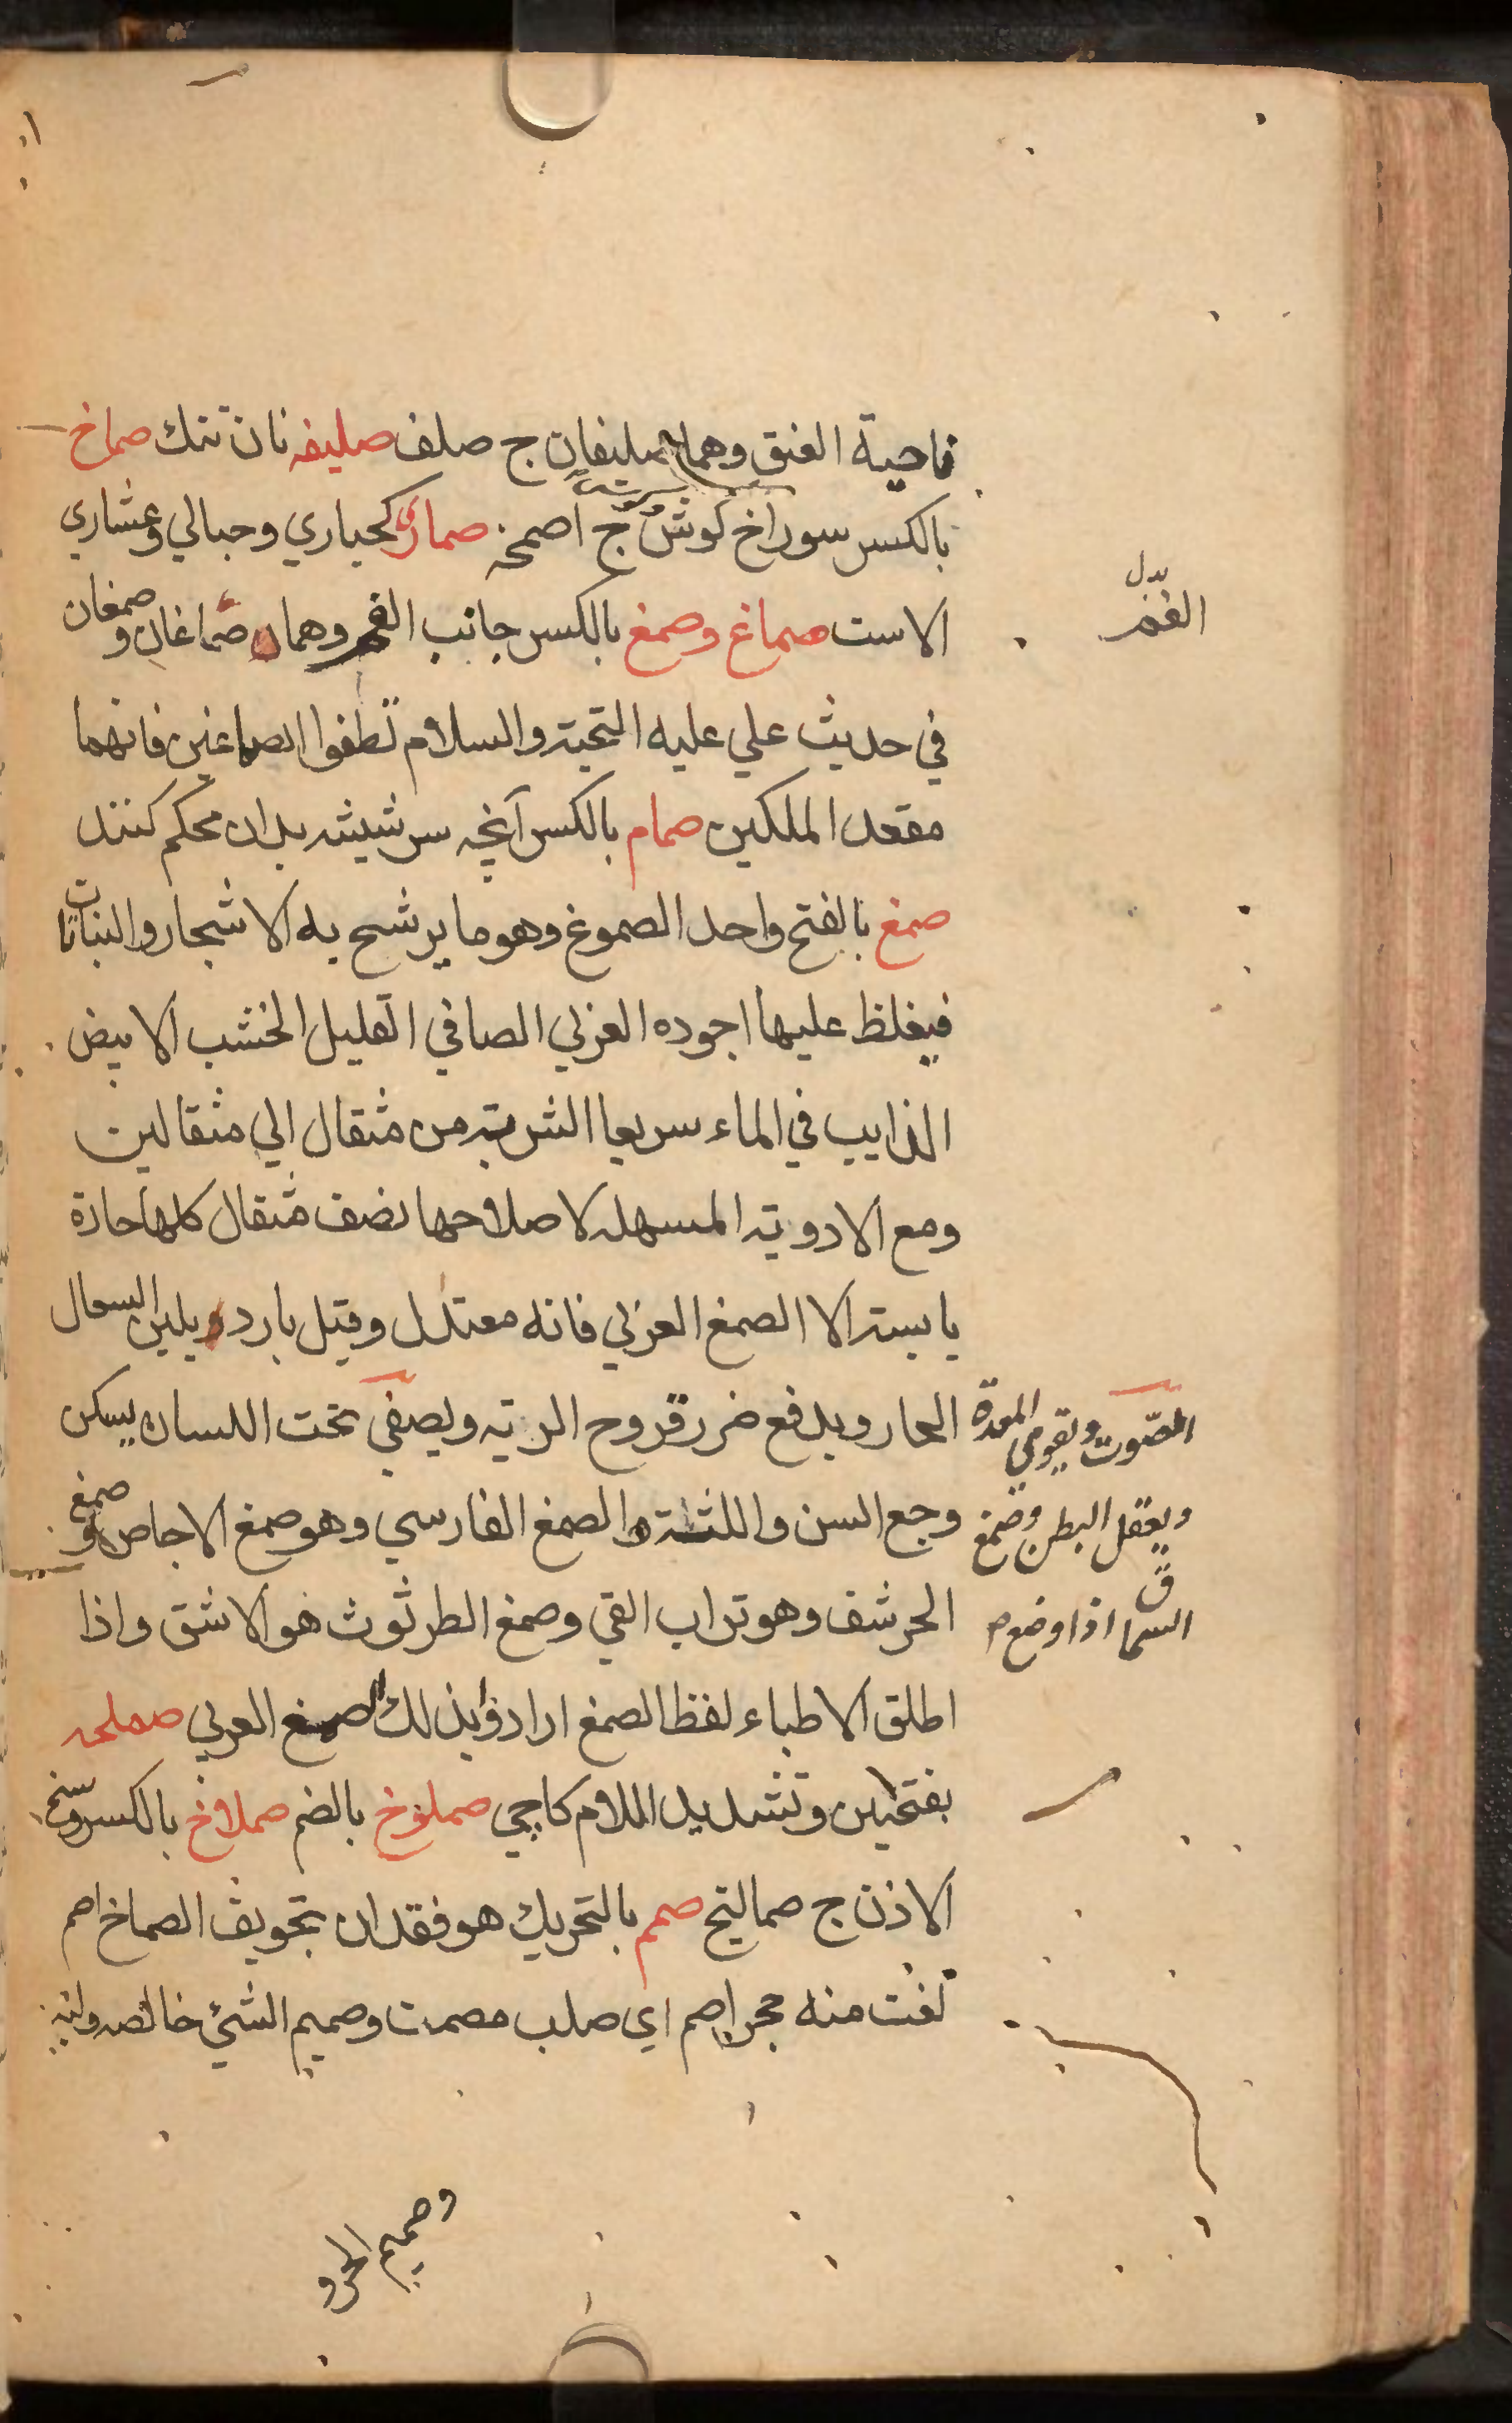 ناحية العنق وهما صليفان ج صلف صليفه نان تنك صماخ
بالكسر سوراخ كوش ج اصمخه صماري كحباري وحبالي وعشاري
الاست صماغ وصمغ بالكسر جانب الفم وهما صماغان وصمغان
بدل
الفم
في حديث علي عليه التحية والسلام نظفوا الصماغين فانهما
مقعد الملكين صمام بالكسر آنچه سر شيشه بدان محكم كنند
صمغ بالفتح واحد الصموغ وهو ما يرشح به الاشجار والنباتات
فيغلظ عليها اجوده العربي الصافي القليل الخشب الابيض
الذايب في الماء سريعا الشربة من مثقال الي مثقالين
ومع الادوية المسهله لاصلاحها نصف مثقال كلها حارة
يابسة الا الصمغ العربي فانه معتدل وقيل بارد يلين السعال
الحار ويدفع ضرر قروح الريه ويصفي تحت اللسان يسكن
الصوت ويقوي المعدة
وجع السن واللثة والصمغ الفارسي وهو صمغ الاجاص وصمغ
ويعقل البطن وصمغ
الحرشف وهو تراب القي وصمغ الطرثوث هو الاشق واذا
السماق اذا وضع
اطلق الاطباء لفظ الصمغ ارادوا بذلك الصمغ العربي صملحه
بفتحتين وتشديد اللام كاچي صملوخ بالضم صملاخ بالكسر وسخ
الاذن ج صماليخ صمم بالتحريك هو فقدان تجويف الصماخ اصم
لغت منه حجر اصم اي صلب مصمت وصميم الشئ خالصه ولبه
وصميم الحر و